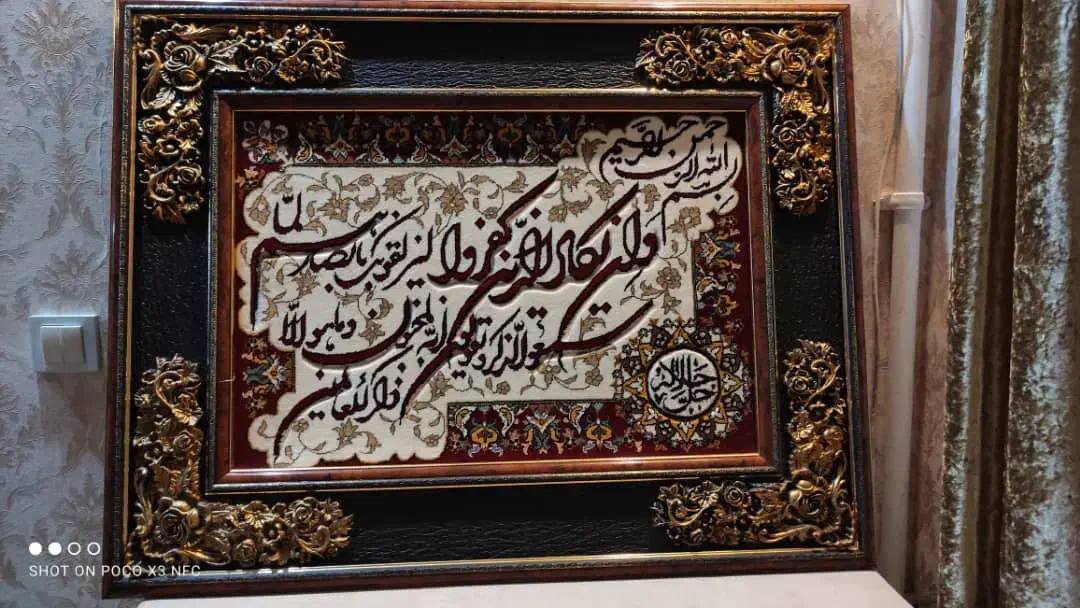 بسم الله الرحمن الرحیم
وان یکاد الذین کفروا لیزلقونک بابصارهم لما
سمعوا الذکر و یقولون انه لمجنون وما هو الا
ذکر للعالمین
جل جلاله
SHOT ON POCO X3 NFC